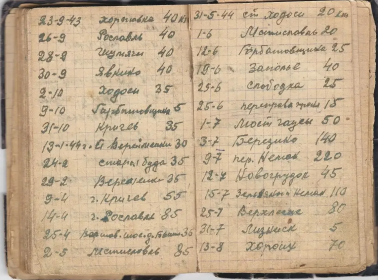 23-9-43 хореповка 40 км
26-9 Рославль 40
28-9 40
30-9 Явкино 40
2-10 Ходоси 35
9-10 Горбатовщина 5
31-10 Кричев 35
13-1-44 г. Веремейки 30
24-2 Старая Буда 35
29-2 Веремейки 35
9-4 г. Кричев 55
14-4 г. Рославле 85
25-4 35
2-5 Мстиславль 85
31-5-44 ст Ходоси 20 км
1-6 Мстиславль 20
12-6 Горбатовщине 25
19-6 Заполье 40
25-6 Слободка 25
25-6 15
1-7 Мост 50
3-7 Березино 140
9-7 пер. Неман 220
12-7 Новогрудок 45
15-7 Неман 110
25-7 80
31-7 5
13-8 Хорощ 70